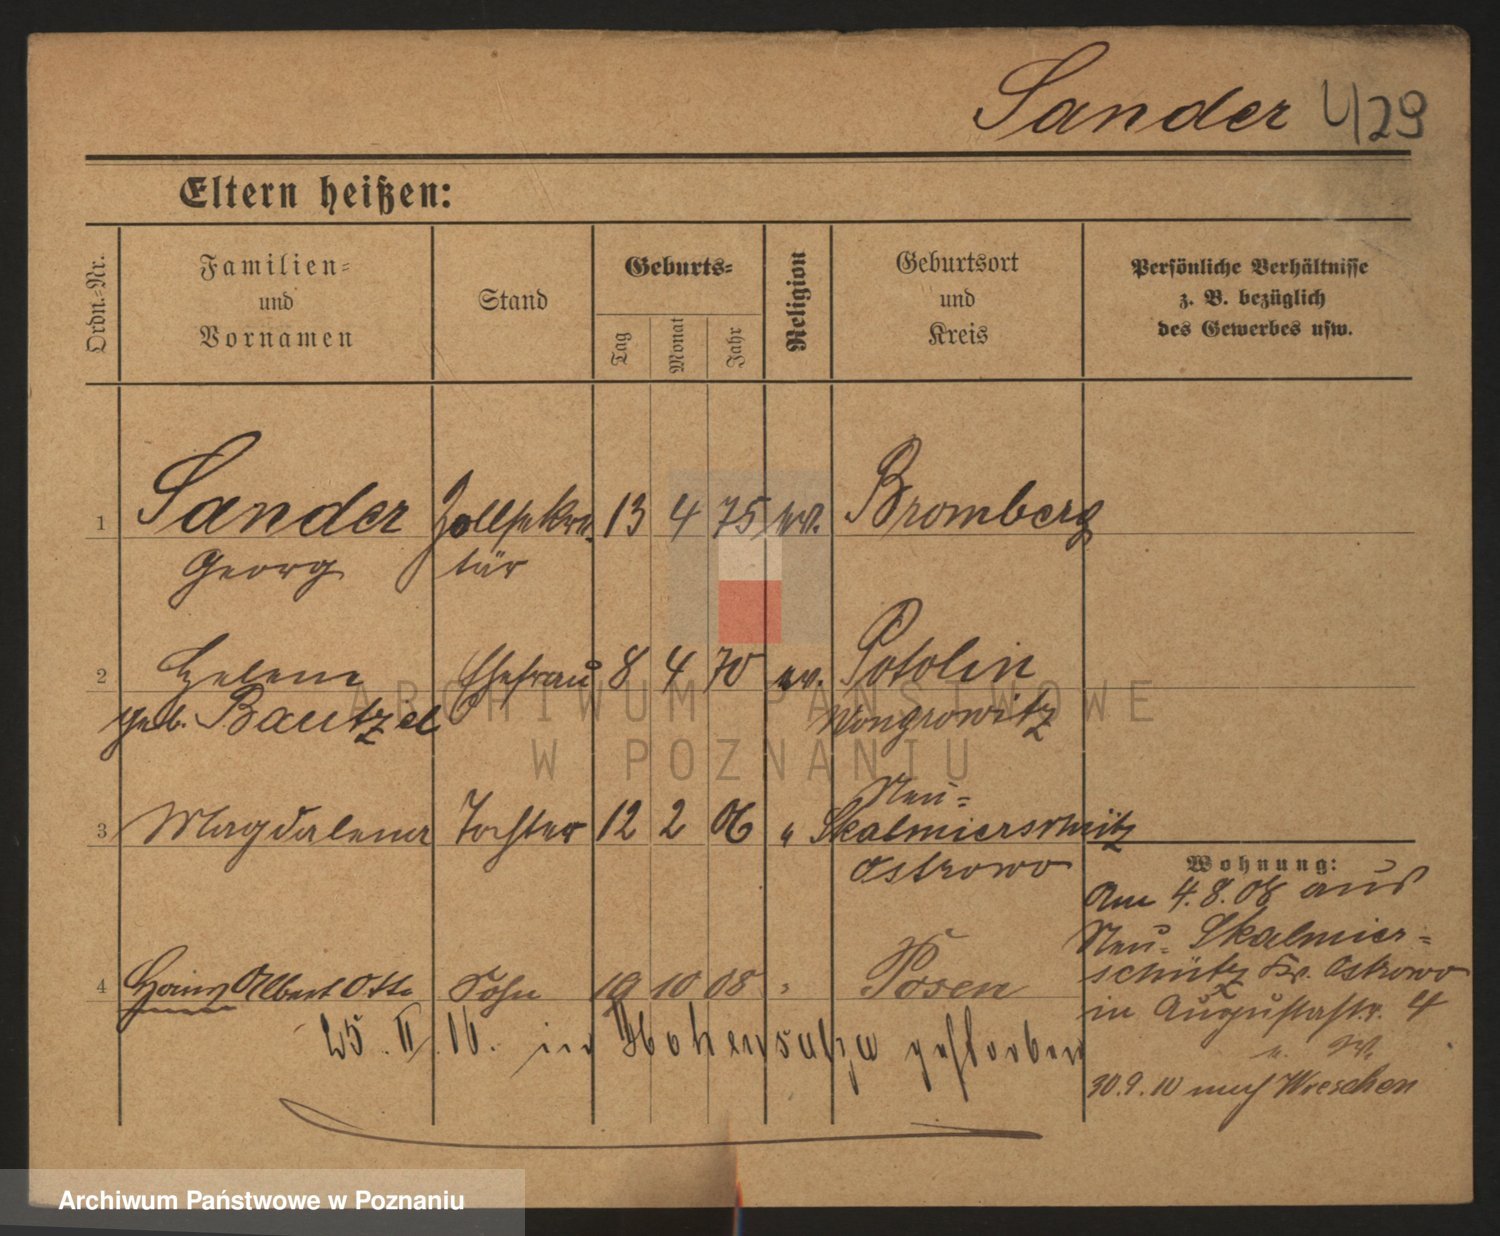 Sander 4/29
Eltern heißen:
Ordn.-Nr.
Familien-
und
Vornamen
Stand
Geburts-
Tag
Monat
Jahr
Religion
Geburtsort
und
Kreis
Persönliche Verhältnisse
z. B. bezüglich
des Gewerbes usw.
1 Sander Zollsekre- 13 4 75 ev. Bromberg
Georg tär
2 Helene Ehefrau 8 4 70 ev. Potolin
geb. Bautzel Wongrowitz
Neu-
3 Magdalena Tochter 12 2 06 " Skalmierschütz
Ostrowo
Wohnung:
Am 4.8.08 aus
Neu-Skalmier-
schütz Kr. Ostrowo
in Augustastr. 4
4 Heinz Albert Otto Sohn 19 10 08 " Posen
25. II. 16. in Hohensalza gestorben
30.9.10 nach Wreschen
ARCHIWUM PAŃSTWOWE
W POZNANIU
Archiwum Państwowe w Poznaniu